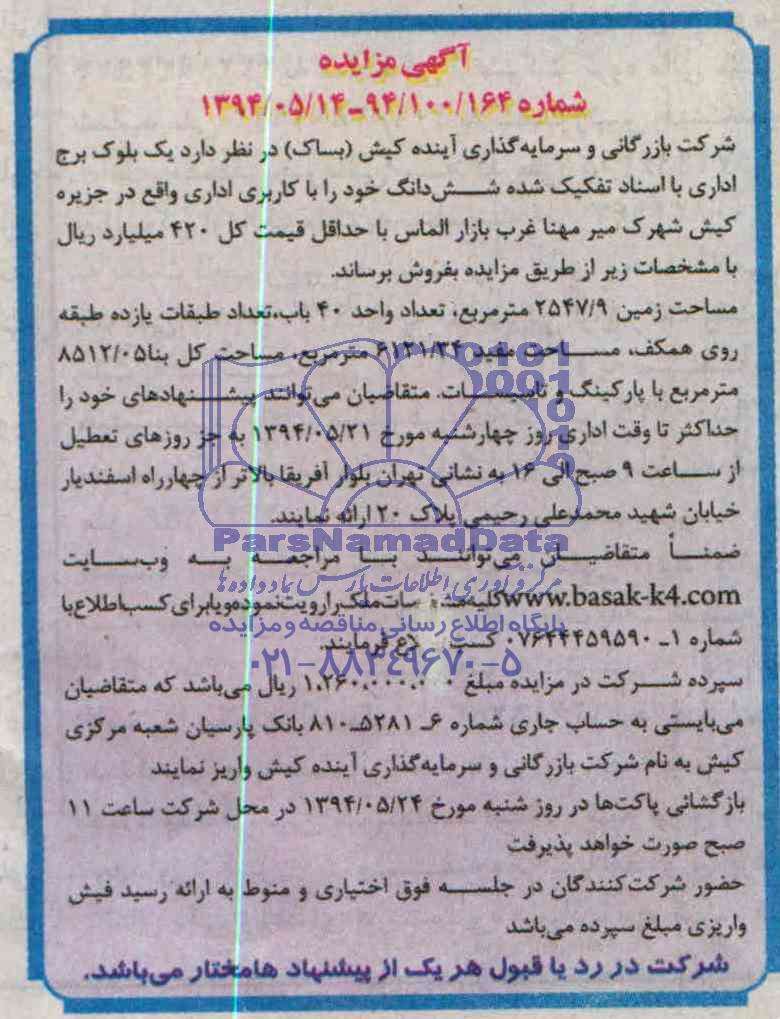 آگهی مزایده
شماره ۹۴/۱۰۰/۱۶۴-۱۳۹۴/۰۵/۱۴
شرکت بازرگانی و سرمایه‌گذاری آینده کیش (بساک) در نظر دارد یک بلوک برج
اداری با اسناد تفکیک شده شش‌دانگ خود را با کاربری اداری واقع در جزیره
کیش شهرک میر مهنا غرب بازار الماس با حداقل قیمت کل ۴۲۰ میلیارد ریال
با مشخصات زیر از طریق مزایده بفروش برساند.
مساحت زمین ۲۵۴۷/۹ مترمربع، تعداد واحد ۴۰ باب،تعداد طبقات یازده طبقه
روی همکف، مساحت مفید ۶۱۲۱/۳۴ مترمربع، مساحت کل بنا۸۵۱۲/۰۵
مترمربع با پارکینگ و تاسیسات. متقاضیان می‌توانند پیشنهادهای خود را
حداکثر تا وقت اداری روز چهارشنبه مورخ ۱۳۹۴/۰۵/۲۱ به جز روزهای تعطیل
از ساعت ۹ صبح الی ۱۶ به نشانی تهران بلوار آفریقا بالاتر از چهارراه اسفندیار
خیابان شهید محمدعلی رحیمی پلاک ۲۰ ارائه نمایند.
ParsNamadData
ضمناً متقاضیان می‌توانند با مراجعه به وب‌سایت
مرکز فرآوری اطلاعات پارس نماد داده‌ها
www.basak-k4.com کلیه مشخصات ملک را رویت نموده و یا برای کسب اطلاع با
پایگاه اطلاع رسانی مناقصه و مزایده
شماره ۱ـ ۰۷۶۴۴۴۵۹۵۹۰ کسب اطلاع فرمایند.
۰۲۱-۸۸۳۴۹۶۷۰-۵
سپرده شرکت در مزایده مبلغ ۱.۲۶۰.۰۰۰.۰۰۰ ریال می‌باشد که متقاضیان
می‌بایستی به حساب جاری شماره ۶ـ ۵۲۸۱ـ۸۱۰ بانک پارسیان شعبه مرکزی
کیش به نام شرکت بازرگانی و سرمایه‌گذاری آینده کیش واریز نمایند
بازگشائی پاکت‌ها در روز شنبه مورخ ۱۳۹۴/۰۵/۲۴ در محل شرکت ساعت ۱۱
صبح صورت خواهد پذیرفت
حضور شرکت‌کنندگان در جلسه فوق اختیاری و منوط به ارائه رسید فیش
واریزی مبلغ سپرده می‌باشد
شرکت در رد یا قبول هر یک از پیشنهاد هامختار می‌باشد.